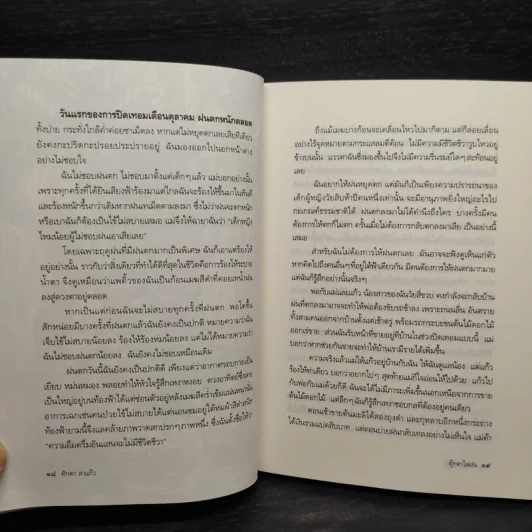 วันแรกของการปิดเทอมเดือนตุลาคม ฝนตกหนักตลอด
ทั้งบ่าย กระทั่งใกล้ค่ำค่อยซาเม็ดลง หากแต่ไม่หยุดตกเลยเสียทีเดียว
ยังคงกะปริดกะปรอยประปรายอยู่ ฉันมองออกไปนอกหน้าต่าง
อย่างไม่ชอบใจ
ฉันไม่ชอบฝนตก ไม่ชอบมาตั้งแต่เด็กๆแล้ว แม่บอกอย่างนั้น
เพราะทุกครั้งที่ได้ยินเสียงฟ้าร้องมาแต่ไกลฉันจะร้องไห้ขึ้นมาในทันที
และร้องหนักขึ้นกว่าเดิมหากฝนเทเม็ดตามลงมา ซึ่งไม่ว่าฝนจะตกหนัก
หรือเบาฉันก็ต้องเป็นไข้ไม่สบายเสมอ แม่จึงให้ฉายาฉันว่า "เด็กหญิง
ไหมน้อยผู้ไม่ชอบฝนเอาเสียเลย"
โดยเฉพาะฤดูฝนที่มีฝนตกมากเป็นพิเศษ ฉันก็เอาแต่ร้องไห้
อยู่อย่างนั้น ราวกับว่าสิ่งเดียวที่ทำได้ดีที่สุดในชีวิตคือการร้องไห้ระบาย
น้ำตา จึงดูเหมือนว่าแพขั้วของฉันเป็นก้อนเมฆสีดำที่คอยเทน้ำฝน
ลงสู่ดวงตาอยู่ตลอด
หากเป็นแต่ก่อนฉันจะไม่สบายทุกครั้งที่ฝนตก พอโตขึ้น
สักหน่อยมีบางครั้งที่ฝนตกแล้วฉันยังคงเป็นปกติ หมายความว่าฉัน
เจ็บไข้ไม่สบายน้อยลง ร้องไห้ร้องห่มน้อยลง แต่ไม่ได้หมายความว่า
ฉันไม่ชอบฝนตกน้อยลง ฉันยังคงไม่ชอบเหมือนเดิม
ฝนตกวันนี้ฉันยังคงเป็นปกติดี เพียงแต่ว่าอากาศรอบกายเย็น
เยียบ หม่นหมอง พลอยทำให้หัวใจรู้สึกเหงาหงอย ดวงอาทิตย์ซึ่งเคย
เป็นใหญ่อยู่บนท้องฟ้าได้แต่ซ่อนตัวอยู่หลังเมฆสีคร่ำเข้มแน่นหนา
อาการเฉกเช่นคนป่วยไข้ไม่สบายได้แต่นอนซมอยู่ใต้ห่มผ้าสีดำสนิท
ท้องฟ้ายามนี้จึงแลคล้ายภาพวาดสกปรกๆภาพหนึ่ง ซึ่งฉันตั้งชื่อให้ว่า
"ความอึมครึมอันแสนจะไม่มีชีวิตชีวา"
๑๘ ศักดา สาแก้ว
ถึงแม้เมฆบางก้อนจะเคลื่อนไหวไปมาก็ตาม แต่ก็ลอยเลื่อน
อย่างไร้จุดหมายตามกระแสลมตีต้อน ไม่มีความมีชีวิตชีวาวูบไหวอยู่
ข้างบนนั้น แววตาฉันซึ่งมองขึ้นไปจึงไม่มีความรื่นรมย์ใดๆสะท้อนอยู่
เลย
ฉันอยากให้ฝนหยุดตก แต่มันก็เป็นเพียงความปรารถนาของ
เด็กผู้หญิงวัยสิบห้าปีคนหนึ่งเท่านั้น จะมีอานุภาพยิ่งใหญ่อะไรไป
กะเกณฑ์ธรรมชาติได้ ฝนตกลงมาไม่ได้คำนึงถึงใคร บางครั้งมีคน
ต้องการให้ตกก็ไม่ตก ครั้นเมื่อไม่ต้องการกลับตกลงมาเสีย เป็นอย่างนี้
เสมอ
สำหรับฉันไม่ต้องการให้ฝนตกเลย มันอาจจะฟังดูเห็นแก่ตัว
หากคิดไปถึงคนอื่นๆที่อยู่ใต้ฟ้าเดียวกัน มีคนต้องการให้ฝนตกมากมาย
แต่ฉันก็รู้สึกอย่างนั้นจริงๆ
พ่อกับแม่และแก้ว น้องสาวของฉันวัยสี่ขวบ คงกำลังจะกลับบ้าน
ฝนที่ตกลงมาอาจจะทำให้พ่อต้องขับรถช้าลง เพราะถนนลื่น อันตราย
ทั้งสามคนออกจากบ้านตั้งแต่เช้าตรู่ พร้อมรถกระบะขนต้นไม้ดอกไม้
ออกเร่ขาย ส่วนฉันรับหน้าที่ขายอยู่ที่บ้านในช่วงปิดเทอมแบบนี้ แม่
บอกว่าหากช่วยกันขายจะทำให้บ้านเรามีรายได้เพิ่มขึ้น
ความจริงแล้วแม่ให้แก้วอยู่บ้านกับฉัน ให้ฉันดูแลน้อง แต่แก้ว
ร้องไห้ท่าเดียว บอกว่าอยากไปๆ สุดท้ายแม่ก็ใจอ่อนให้ไปด้วย แก้วไป
กับพ่อกับแม่ด้วยก็ดี ฉันจะได้ไม่มีภาระเพิ่มขึ้นนอกเหนือจากการขาย
ต้นไม้ดอกไม้ แต่ลึกๆฉันก็รู้สึกเหงาชอบกลที่ต้องอยู่คนเดียว
ตอนเช้าขายต้นมะลิได้สองถุงดำ และกุหลาบอีกหนึ่งกระถาง
ได้เงินรวมแปดสิบบาท แต่ตอนบ่ายฝนมากลับเหงาอย่างไม่เห็นใจ แม่ค้า
ตุ๊กตาไล่ฝน ๑๙